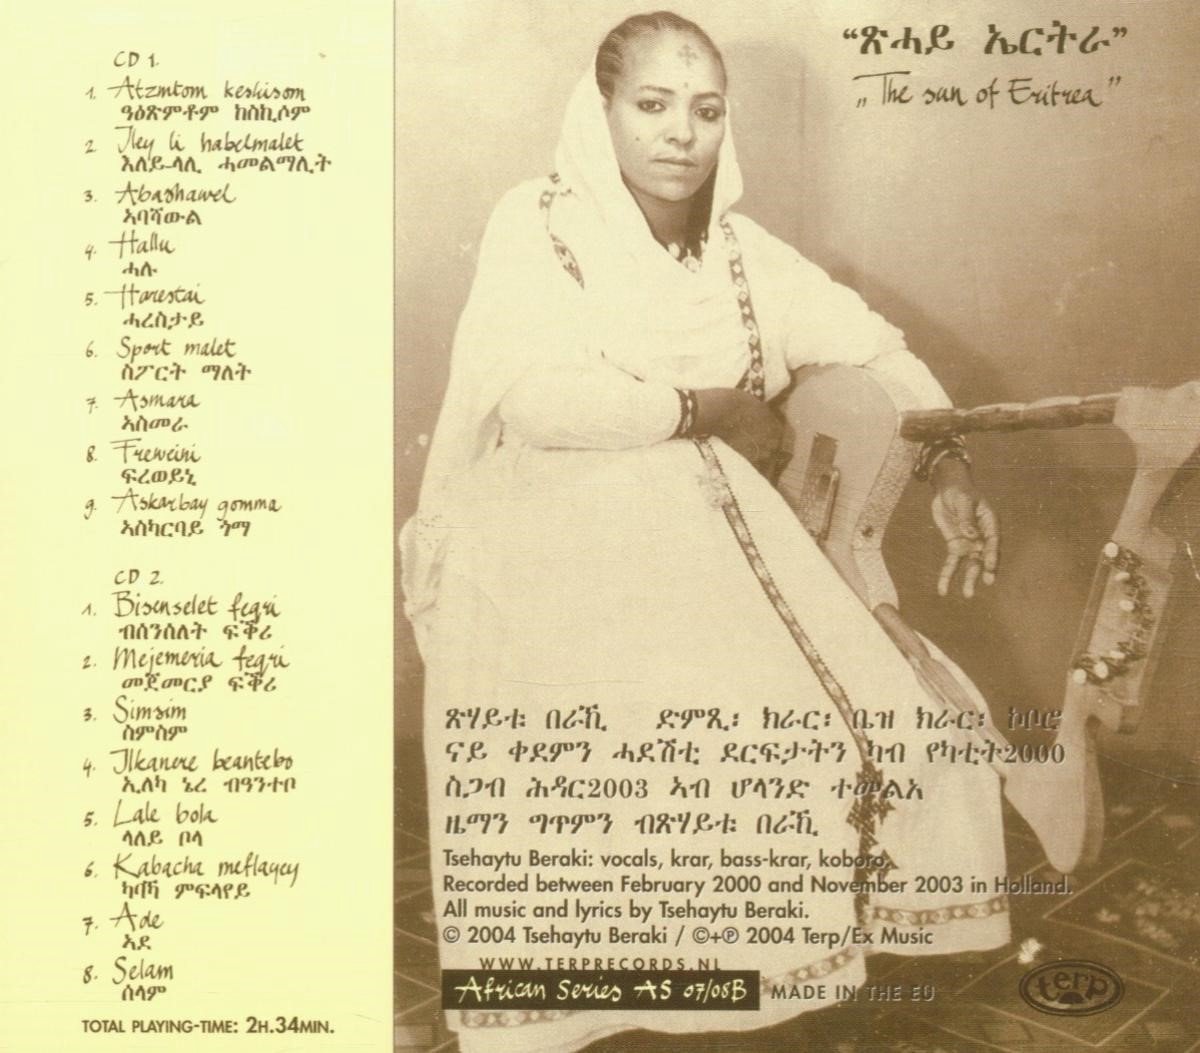 CD 1.
1. Atzmtom keskisom
ዓፅጽምቶም ከስኪሶም
2. Iley li habelmalet
እለይ-ላሊ ሓመልማሊት
3. Abashawel
ኣባሻውል
4. Hallu
ሓሉ
5. Harestai
ሓረስታይ
6. Sport malet
ስፖርት ማለት
7. Asmara
ኣስመራ
8. Freweini
ፍረወይኒ
9. Askarbay gomma
ኣስካርባይ ጎማ
CD 2.
1. Bisenselet feqri
ብሰንሰለት ፍቕሪ
2. Mejemeria feqri
መጀመርያ ፍቕሪ
3. Simsim
ስምስም
4. Ilkanere beantebo
ኢለካ ኔረ ብዓንተቦ
5. Lale bola
ላለይ ቦላ
6. Kabacha meflayey
ካባኻ ምፍላየይ
7. Ade
ኣደ
8. Selam
ሰላም
TOTAL PLAYING-TIME: 2H.34MIN.
“ጽሓይ ኤርትራ”
„The sun of Eritrea”
ጽሃይቱ በራኺ ድምጺ፡ ክራር፡ ቤዝ ክራር፡ ኮቦሮ
ናይ ቀደምን ሓደሽቲ ደርፍታትን ካብ የካቲት2000
ስጋብ ሕዳር2003 ኣብ ሆላንድ ተመልአ
ዜማን ግጥምን ብጽሃይቱ በራኺ
Tsehaytu Beraki: vocals, krar, bass-krar, koboro.
Recorded between February 2000 and November 2003 in Holland.
All music and lyrics by Tsehaytu Beraki.
© 2004 Tsehaytu Beraki / ©+℗ 2004 Terp/Ex Music
WWW.TERPRECORDS.NL
African Series AS 07/08B MADE IN THE EU
terp